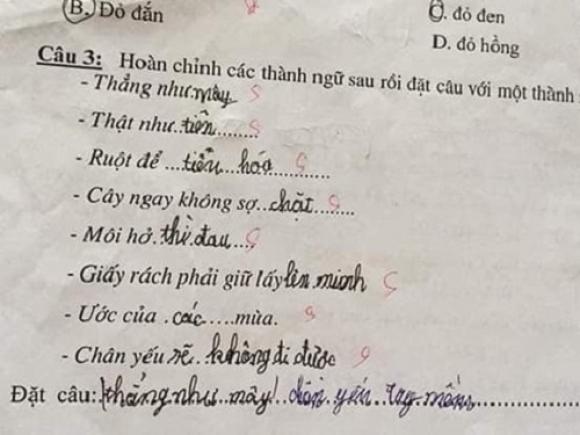 B. Đỏ đắn
C. đỏ đen
D. đỏ hồng
Câu 3: Hoàn chỉnh các thành ngữ sau rồi đặt câu với một thành
- Thẳng như mây
- Thật như..tiền........
- Ruột để ...tiêu...hóa...........
- Cây ngay không sợ..chặt........
- Môi hở.thì.đau....
- Giấy rách phải giữ lấy lên mình
- Ước của .các.....mùa.
- Chân yếu sẽ..không đi được
Đặt câu: thẳng như mây yếu tay mềm